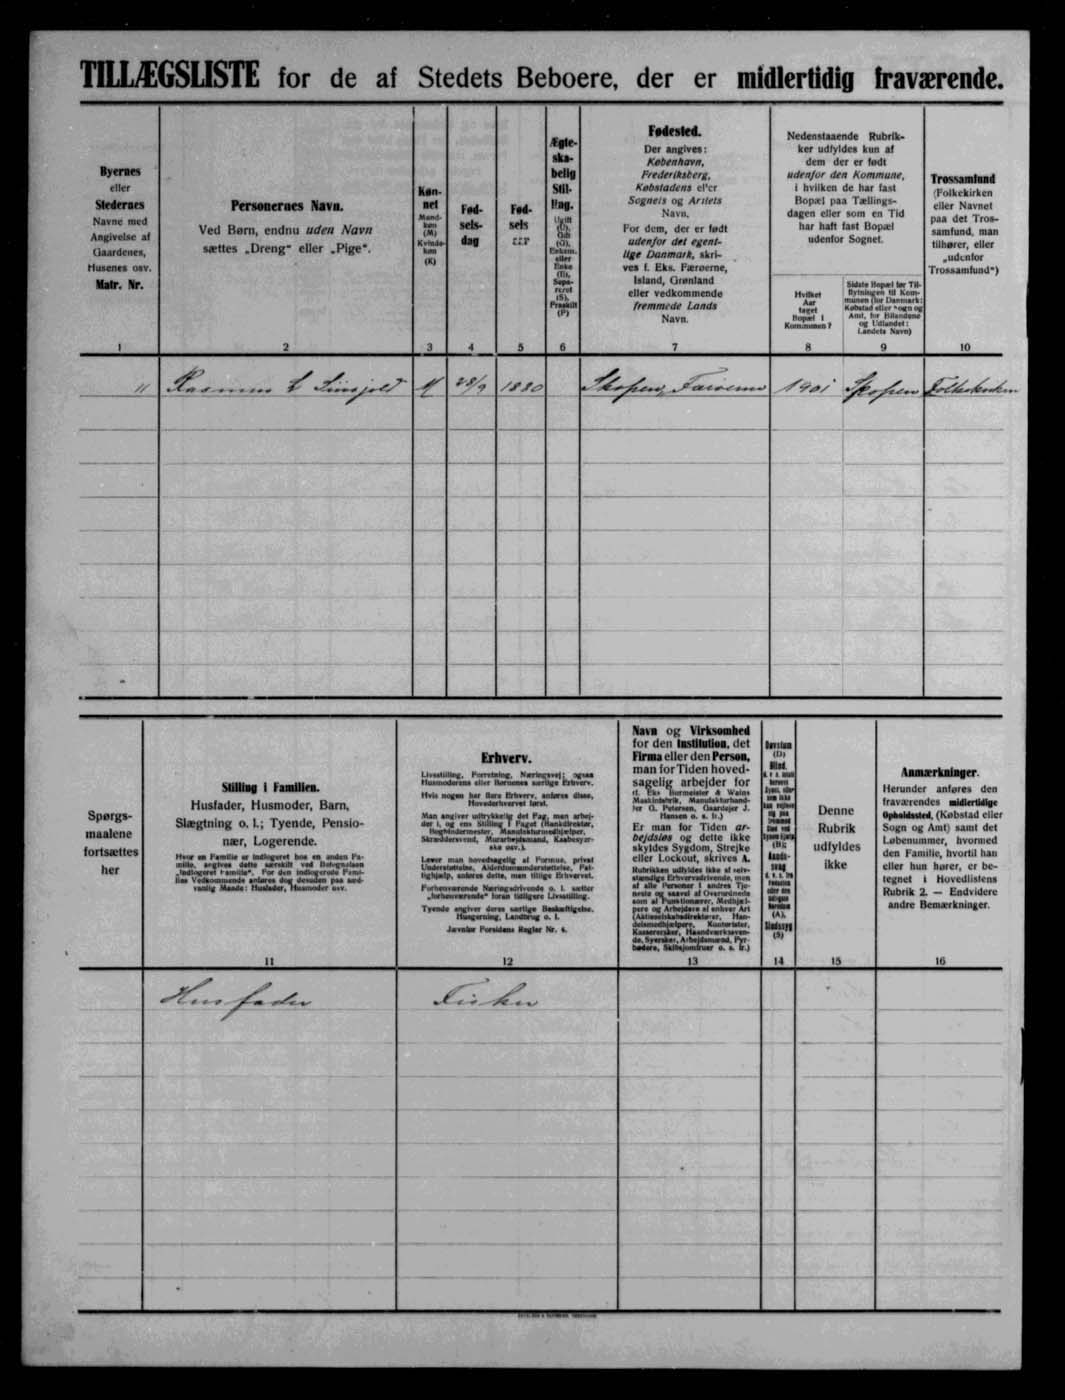 TILLÆGSLISTE for de af Stedets Beboere, der er midlertidig fraværende.
Byernes
eller
Stedernes
Navne med
Angivelse af
Gaardenes,
Husenes osv.
Matr. Nr.
1
Personernes Navn.
Ved Børn, endnu uden Navn
sættes „Dreng“ eller „Pige“.
2
Køn-
net
Mand-
køn
(M)
Kvinde-
køn
(K)
3
Fød-
sels-
dag
4
Fød-
sels
5
Ægte-
ska-
belig
Stil-
ling.
Ugift
(U),
Gift
(G),
Enkem.
eller
Enke
(E),
Sepa-
reret
(S),
Fraskilt
(F)
6
Fødested.
Der angives:
København,
Frederiksberg,
Købstadens eller
Sognets og Amtets
Navn.
For dem, der er født
udenfor det egent-
lige Danmark, skri-
ves f. Eks. Færøerne,
Island, Grønland
eller vedkommende
fremmede Lands
Navn.
7
Nedenstaaende Rubrik-
ker udfyldes kun af
dem der er født
udenfor den Kommune,
i hvilken de har fast
Bopæl paa Tællings-
dagen eller som en Tid
har haft fast Bopæl
udenfor Sognet.
Hvilket
Aar
taget
Bopæl i
Kommunen?
8
Sidste Bopæl før Til-
flytningen til Kom-
munen (for Danmark:
Købstad eller Sogn og
Amt, for Bilandene
og Udlandet:
Landets Navn)
9
Trossamfund
(Folkekirken
eller Navnet
paa det Tros-
samfund, man
tilhører, eller
„udenfor
Trossamfund“)
10
11 Rasmus M 28/9 1880 Skopen, 1901 Skopen Folkekirken
Spørgs-
maalene
fortsættes
her
Stilling i Familien.
Husfader, Husmoder, Barn,
Slægtning o. l.; Tyende, Pensio-
nær, Logerende.
Hvor en Familie er indlogeret hos en anden Fa-
milie, angives dette særskilt ved Betegnelsen
„indlogeret Familie“. For den indlogerede Fami-
lies Vedkommende anføres dog desuden paa sæd-
vanlig Maade: Husfader, Husmoder osv.
11
Erhverv.
Livsstilling, Forretning, Næringsvej; ogsaa
Husmoderens eller Børnenes særlige Erhverv.
Hvis nogen har flere Erhverv, anføres disse,
Hovederhvervet først.
Man angiver udtrykkelig det Fag, man arbej-
der i, og ens Stilling i Faget (Bankdirektør,
Bogbindermester, Manufakturmedhjælper,
Skræddersvend, Murarbejdsmand, Kaabesyer-
ske osv.).
Lever man hovedsagelig af Formue, privat
Understøttelse, Alderdomsunderstøttelse, Fat-
tighjælp, anføres dette, men tillige Erhvervet.
Forhenværende Næringsdrivende o. l. sætter
„forhenværende“ foran tidligere Livsstilling.
Tyende angiver deres særlige Beskæftigelse,
Husgerning, Landbrug o. l.
Jævnfør Forsidens Regler Nr. 4.
12
Navn og Virksomhed
for den Institution, det
Firma eller den Person,
man for Tiden hoved-
sagelig arbejder for
(f. Eks Burmeister & Wains
Maskinfabrik, Manufakturhand-
ler G. Petersen, Gaardejer J.
Hansen o. s. fr.)
Er man for Tiden ar-
bejdsløs og dette ikke
skyldes Sygdom, Strejke
eller Lockout, skrives A.
Rubrikken udfyldes ikke af selv-
stændige Erhvervsdrivende, men
af alle Personer i andres Tje-
neste og saavel af Overordnede
som af Funktionærer, Medhjæl-
pere og Arbejdere af enhver Art
(Aktieselskabsdirektører, Han-
delsmedhjælpere, Kontorister,
Kasserersker, Haandværkssven-
de, Syersker, Arbejdsmænd, Fyr-
bødere, Skibsjomfruer o. s. fr.)
13
Døvstum
(D)
Blind,
(B);
(A),
Sindssyg
(S)
14
Denne
Rubrik
udfyldes
ikke
15
Anmærkninger.
Herunder anføres den
fraværendes midlertidige
Opholdssted, (Købstad eller
Sogn og Amt) samt det
Løbenummer, hvormed
den Familie, hvortil han
eller hun hører, er be-
tegnet i Hovedlistens
Rubrik 2. — Endvidere
andre Bemærkninger.
16
Husfader Fisker